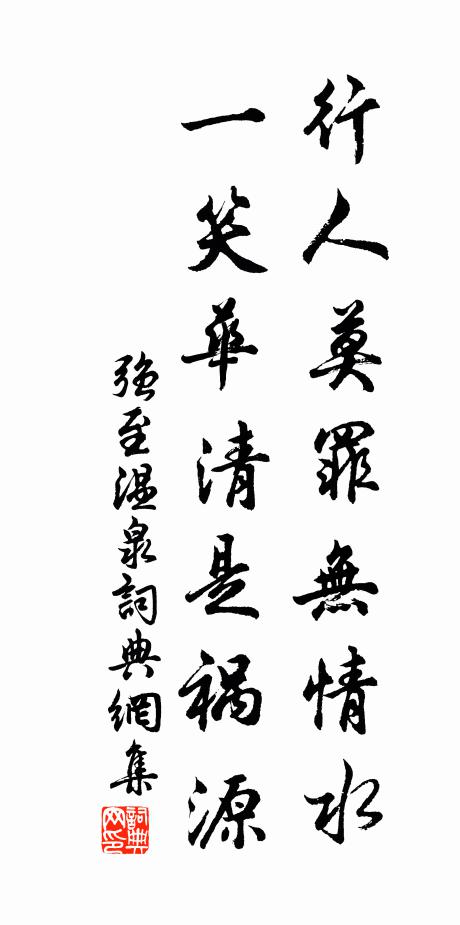 行人莫罪無情水
一笑華清是禍源
強至温泉詞典網集
詞典
网印